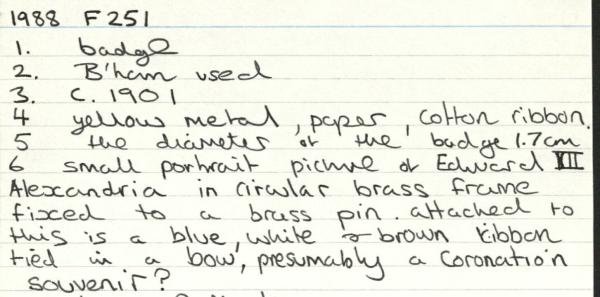 1988 F251
1. badge
2. B'ham used
3. C. 1901
4 yellow metal, paper, cotton ribbon.
5 the diameter of the badge 1.7cm
6 small portrait picture of Edward VII
Alexandria in circular brass frame
fixed to a brass pin. attached to
this is a blue, white & brown ribbon
tied in a bow, presumably a Coronation
souvenir?